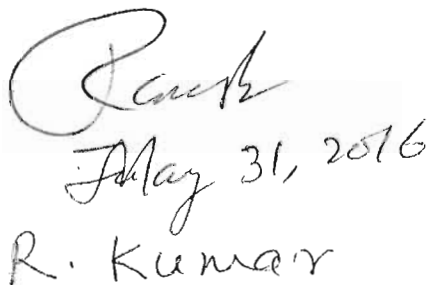 May 31, 2016
R. Kumar